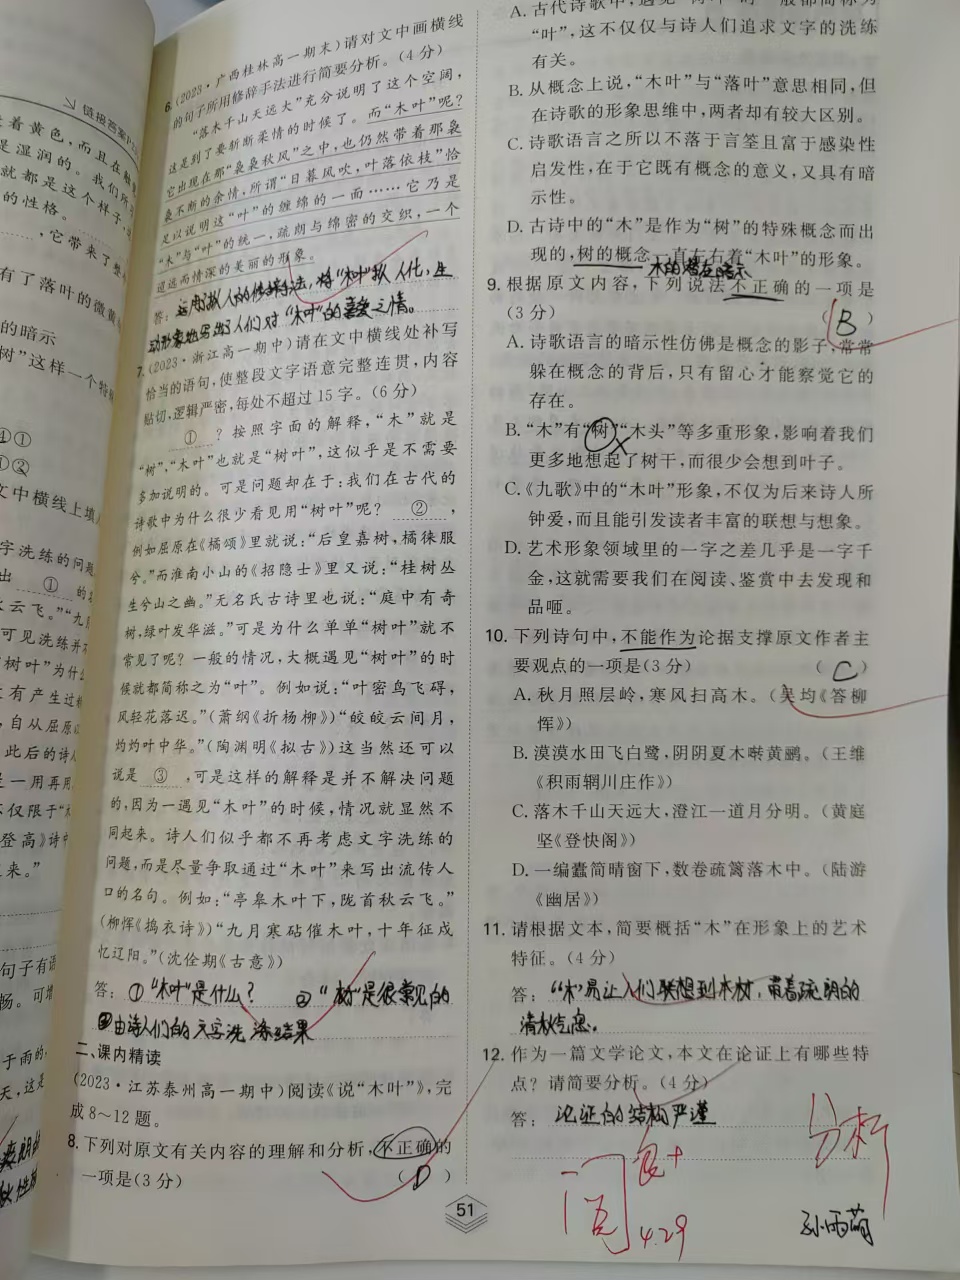 链接答案
着黄色,而且在触
是湿润的。我们所
就都是这个样子,
的性格。
,它带来了整
有了落叶的微黄
的暗示
树”这样一个特
④①
①②
文中横线上填
字洗练的问题
出 ① 的名
云飞。”“九月
可见洗练并不
“树叶”为什么
有产生过
,自从屈原以
此后的诗人
一用再用
仅限于“木
登高》诗中
来。”
句子有语
畅。可增
于雨的
天,这是
6.(2023·广西桂林高一期末)请对文中画横线
的句子所用修辞手法进行简要分析。(4分)
“落木千山天远大”充分说明了这个空阔,
这是到了要斩断柔情的时候了。而“木叶”呢?
它出现在那“袅袅秋风”之中,也仍然带着那袅
袅不断的余情,所谓“日暮风吹,叶落依枝”恰
足以说明这“叶”的缠绵的一面……它乃是
“木”与“叶”的统一,疏朗与绵密的交织,一个
迢远而情深的美丽的形象。
答:运用拟人的修辞手法,将“木叶”拟人化,生
动形象地写出了人们对“木叶”的喜爱之情。
7.(2023·浙江高一期中)请在文中横线处补写
恰当的语句,使整段文字语意完整连贯,内容
贴切,逻辑严密,每处不超过15字。(6分)
① ?按照字面的解释,“木”就是
“树”,“木叶”也就是“树叶”,这似乎是不需要
多加说明的。可是问题却在于:我们在古代的
诗歌中为什么很少看见用“树叶”呢? ② ,
例如屈原在《橘颂》里就说:“后皇嘉树,橘徕服
兮。”而淮南小山的《招隐士》里又说:“桂树丛
生兮山之幽。”无名氏古诗里也说:“庭中有奇
树,绿叶发华滋。”可是为什么单单“树叶”就不
常见了呢?一般的情况,大概遇见“树叶”的时
候就都简称之为“叶”。例如说:“叶密鸟飞碍,
风轻花落迟。”(萧纲《折杨柳》)“皎皎云间月,
灼灼叶中华。”(陶渊明《拟古》)这当然还可以
说是 ③ ,可是这样的解释是并不解决问题
的,因为一遇见“木叶”的时候,情况就显然不
同起来。诗人们似乎都不再考虑文字洗练的
问题,而是尽量争取通过“木叶”来写出流传人
口的名句。例如:“亭皋木叶下,陇首秋云飞。”
(柳恽《捣衣诗》)“九月寒砧催木叶,十年征戍
忆辽阳。”(沈佺期《古意》)
答:①“木叶”是什么? ②“树”是很常见的
③由诗人们的文字洗涤结果
二、课内精读
(2023·江苏泰州高一期中)阅读《说“木叶”》,完
成8~12题。
8.下列对原文有关内容的理解和分析,不正确的
一项是(3分) ( D )
“叶”,这不仅仅与诗人们追求文字的洗练
有关。
B.从概念上说,“木叶”与“落叶”意思相同,但
在诗歌的形象思维中,两者却有较大区别。
C.诗歌语言之所以不落于言筌且富于感染性
启发性,在于它既有概念的意义,又具有暗
示性。
D.古诗中的“木”是作为“树”的特殊概念而出
现的,树的概念一直左右着“木叶”的形象。
木的潜在暗示
9.根据原文内容,下列说法不正确的一项是
(3分) ( B )
A.诗歌语言的暗示性仿佛是概念的影子,常常
躲在概念的背后,只有留心才能察觉它的
存在。
B.“木”有“树”“木头”等多重形象,影响着我们
更多地想起了树干,而很少会想到叶子。
C.《九歌》中的“木叶”形象,不仅为后来诗人所
钟爱,而且能引发读者丰富的联想与想象。
D.艺术形象领域里的一字之差几乎是一字千
金,这就需要我们在阅读、鉴赏中去发现和
品咂。
10.下列诗句中,不能作为论据支撑原文作者主
要观点的一项是(3分) ( C )
A.秋月照层岭,寒风扫高木。(吴均《答柳
恽》)
B.漠漠水田飞白鹭,阴阴夏木啭黄鹂。(王维
《积雨辋川庄作》)
C.落木千山天远大,澄江一道月分明。(黄庭
坚《登快阁》)
D.一编蠹简晴窗下,数卷疏篱落木中。(陆游
《幽居》)
11.请根据文本,简要概括“木”在形象上的艺术
特征。(4分)
答:“木”易让人们联想到木材,带着疏朗的
清秋气息。
12.作为一篇文学论文,本文在论证上有哪些特
点?请简要分析。(4分)
答:论证的结构严谨
分析
阅
良+
4.29
孙雨萌
51